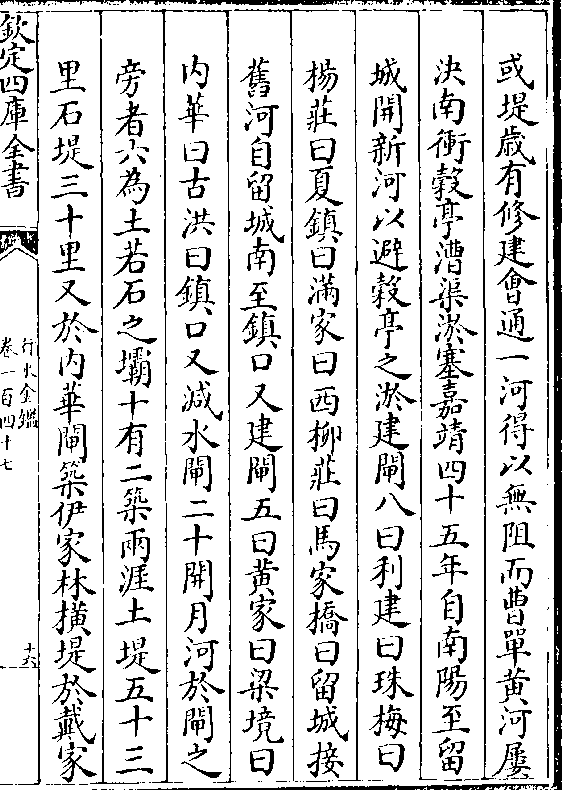 或堤歲有修建會通一河得以無阻而曹單黄河屢
決南衝榖亭漕渠淤塞嘉靖四十五年自南陽至留
城開新河以避榖亭之淤建閘八曰利建曰珠梅曰
楊莊曰夏鎮曰滿家曰西柳莊曰馬家橋曰留城接
舊河自留城南至鎮口又建閘五曰黄家曰梁境曰
内華曰古洪曰鎮口又減水閘二十開月河於閘之
旁者六為土若石之壩十有二築兩涯土堤五十三
里石堤三十里又於内華閘築伊家林横堤於戴家
欽定四庫全書
行水金鑑
卷一百四十七
十六